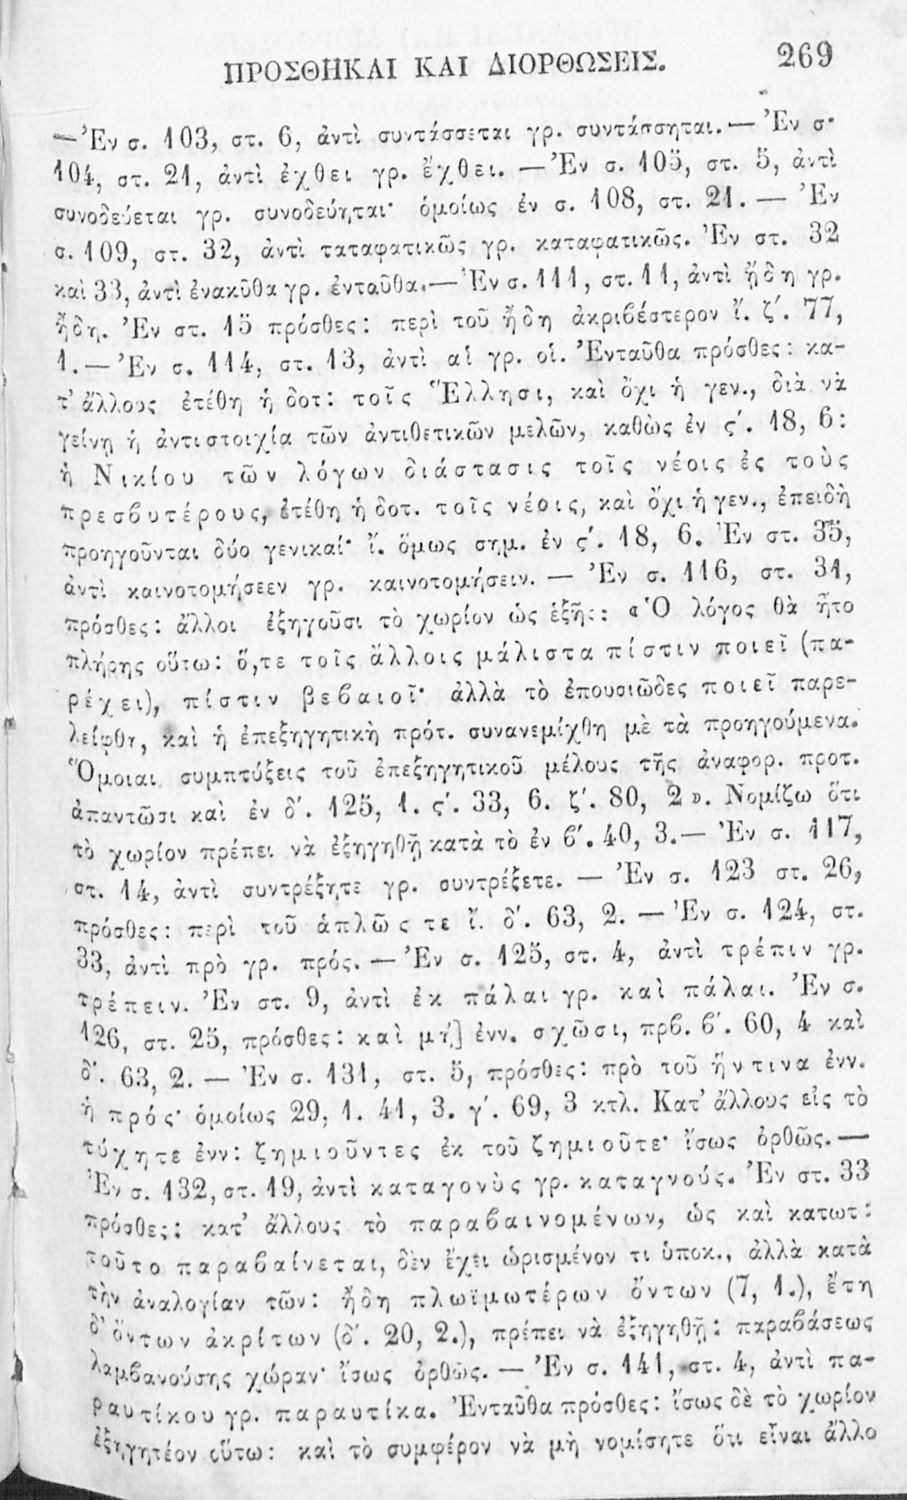 ΠΡΟΣΘΗΚΑΙ ΚΑΙ ΔΙΟΡΘΩΣΕΙΣ. 269
—Ἐν σ. 103, στ. 6, ἀντὶ συντάσσεται γρ. συντάσσηται.— Ἐν σ·
104, στ. 21, ἀντὶ ἐχθει γρ. ἔχθει. —Ἐν σ. 105, στ. 5, ἀντὶ
συνοδεύεται γρ. συνοδεύηται· ὁμοίως ἐν σ. 108, στ. 21. — Ἐν
σ. 109, στ. 32, ἀντὶ ταταφατικῶς γρ. καταφατικῶς. Ἐν στ. 32
καὶ 33, ἀντὶ ἐνακῦθα γρ. ἐνταῦθα.— Ἐν σ. 111, στ. 11, ἀντὶ ἤδη γρ.
ἤδη. Ἐν στ. 15 πρόσθες: περὶ τοῦ ἤδη ἀκριβέστερον ἴ. ζ΄. 77,
1.—Ἐν σ. 114, στ. 13, ἀντὶ αἱ γρ. οἱ. Ἐνταῦθα πρόσθες: κα-
τ' ἄλλους ἐτέθη ἡ δοτ: τοῖς Ἕλλησι, καὶ ὄχι ἡ γεν., διὰ νὰ
γείνῃ ἡ ἀντιστοιχία τῶν ἀντιθετικῶν μελῶν, καθὼς ἐν ς΄. 18, 6:
ἡ Νικίου τῶν λόγων διάστασις τοῖς νέοις ἐς τοὺς
πρεσβυτέρους, ἐτέθη ἡ δοτ. τοῖς νέοις, καὶ ὄχι ἡ γεν., ἐπειδὴ
προηγοῦνται δύο γενικαί· ἴ. ὅμως σημ. ἐν ς΄. 18, 6. Ἐν στ. 35,
ἀντὶ καινοτομήσεεν γρ. καινοτομήσειν. — Ἐν σ. 116, στ. 31,
πρόσθες: ἄλλοι ἐξηγοῦσι τὸ χωρίον ὡς ἑξῆς: «Ὁ λόγος θὰ ἦτο
πλήρης οὕτω: ὅ,τε τοῖς ἄλλοις μάλιστα πίστιν ποιεῖ (πα-
ρέχει), πίστιν βεβαιοῖ· ἀλλὰ τὸ ἐπουσιῶδες ποιεῖ παρε-
λείφθη, καὶ ἡ ἐπεξηγητικὴ πρότ. συνανεμίχθη μὲ τὰ προηγούμενα.
Ὅμοιαι συμπτύξεις τοῦ ἐπεξηγητικοῦ μέλους τῆς ἀναφορ. προτ.
ἀπαντῶσι καὶ ἐν δ΄. 125, 1. ς΄. 33, 6. ζ΄. 80, 2 ». Νομίζω ὅτι
τὸ χωρίον πρέπει νὰ ἐξηγηθῇ κατὰ τὸ ἐν β΄. 40, 3.— Ἐν σ. 117,
στ. 14, ἀντὶ συντρέξητε γρ. συντρέξετε. — Ἐν σ. 123 στ. 26,
πρόσθες: περὶ τοῦ ἁπλῶς τε ἴ. δ΄. 63, 2. — Ἐν σ. 124, στ.
33, ἀντὶ πρὸ γρ. πρός. — Ἐν σ. 125, στ. 4, ἀντὶ τρέπιν γρ.
τρέπειν. Ἐν στ. 9, ἀντὶ ἐκ πάλαι γρ. καὶ πάλαι. Ἐν σ.
126, στ. 25, πρόσθες: καὶ μὴ] ἐνν. σχῶσι, πρβ. β΄. 60, 4 καὶ
δ΄. 63, 2. — Ἐν σ. 131, στ. 5, πρόσθες: πρὸ τοῦ ἥντινα ἐνν.
ἡ πρός· ὁμοίως 29, 1. 41, 3. γ΄. 69, 3 κτλ. Κατ' ἄλλους εἰς τὸ
τύχητε ἐνν: ζημιοῦντες ἐκ τοῦ ζημιοῦτε· ἴσως ὀρθῶς.—
Ἐν σ. 132, στ. 19, ἀντὶ καταγονὺς γρ. καταγνούς. Ἐν στ. 33
πρόσθες: κατ' ἄλλους τὸ παραβαινομένων, ὡς καὶ κατωτ:
τοῦτο παραβαίνεται, δὲν ἔχει ὡρισμένον τι ὑποκ., ἀλλὰ κατὰ
τὴν ἀναλογίαν τῶν: ἤδη πλωϊμωτέρων ὄντων (7, 1.), ἔτη
δ' ὄντων ἀκρίτων (δ΄. 20, 2.), πρέπει νὰ ἐξηγηθῇ: παραβάσεως
λαμβανούσης χώραν· ἴσως ὀρθῶς. — Ἐν σ. 141, στ. 4, ἀντὶ πα-
ραυτίκου γρ. παραυτίκα. Ἐνταῦθα πρόσθες: ἴσως δὲ τὸ χωρίον
ἐξηγητέον οὕτω: καὶ τὸ συμφέρον νὰ μὴ νομίσητε ὅτι εἶναι ἄλλο